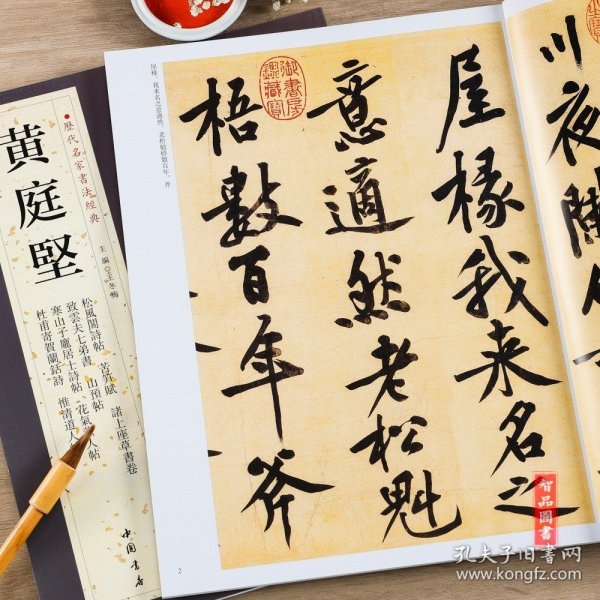 川夜
屋椽我来名之
意適然老松魁
梧數百年斧
御書房鑑藏寶
屋椽,我来名之意適然。老松魁梧數百年,斧
2
歷代名家書法經典
黄庭堅
主編 王冬梅
松風閣詩帖 苦笋賦 諸上座草書卷
致雲夫七弟書 山預帖 花氣 人帖
寒山子龐居士詩帖
杜甫寄賀蘭銛詩 惟清道人
中国書店
智品圖書
孔夫子旧書网
www.kongfz.com